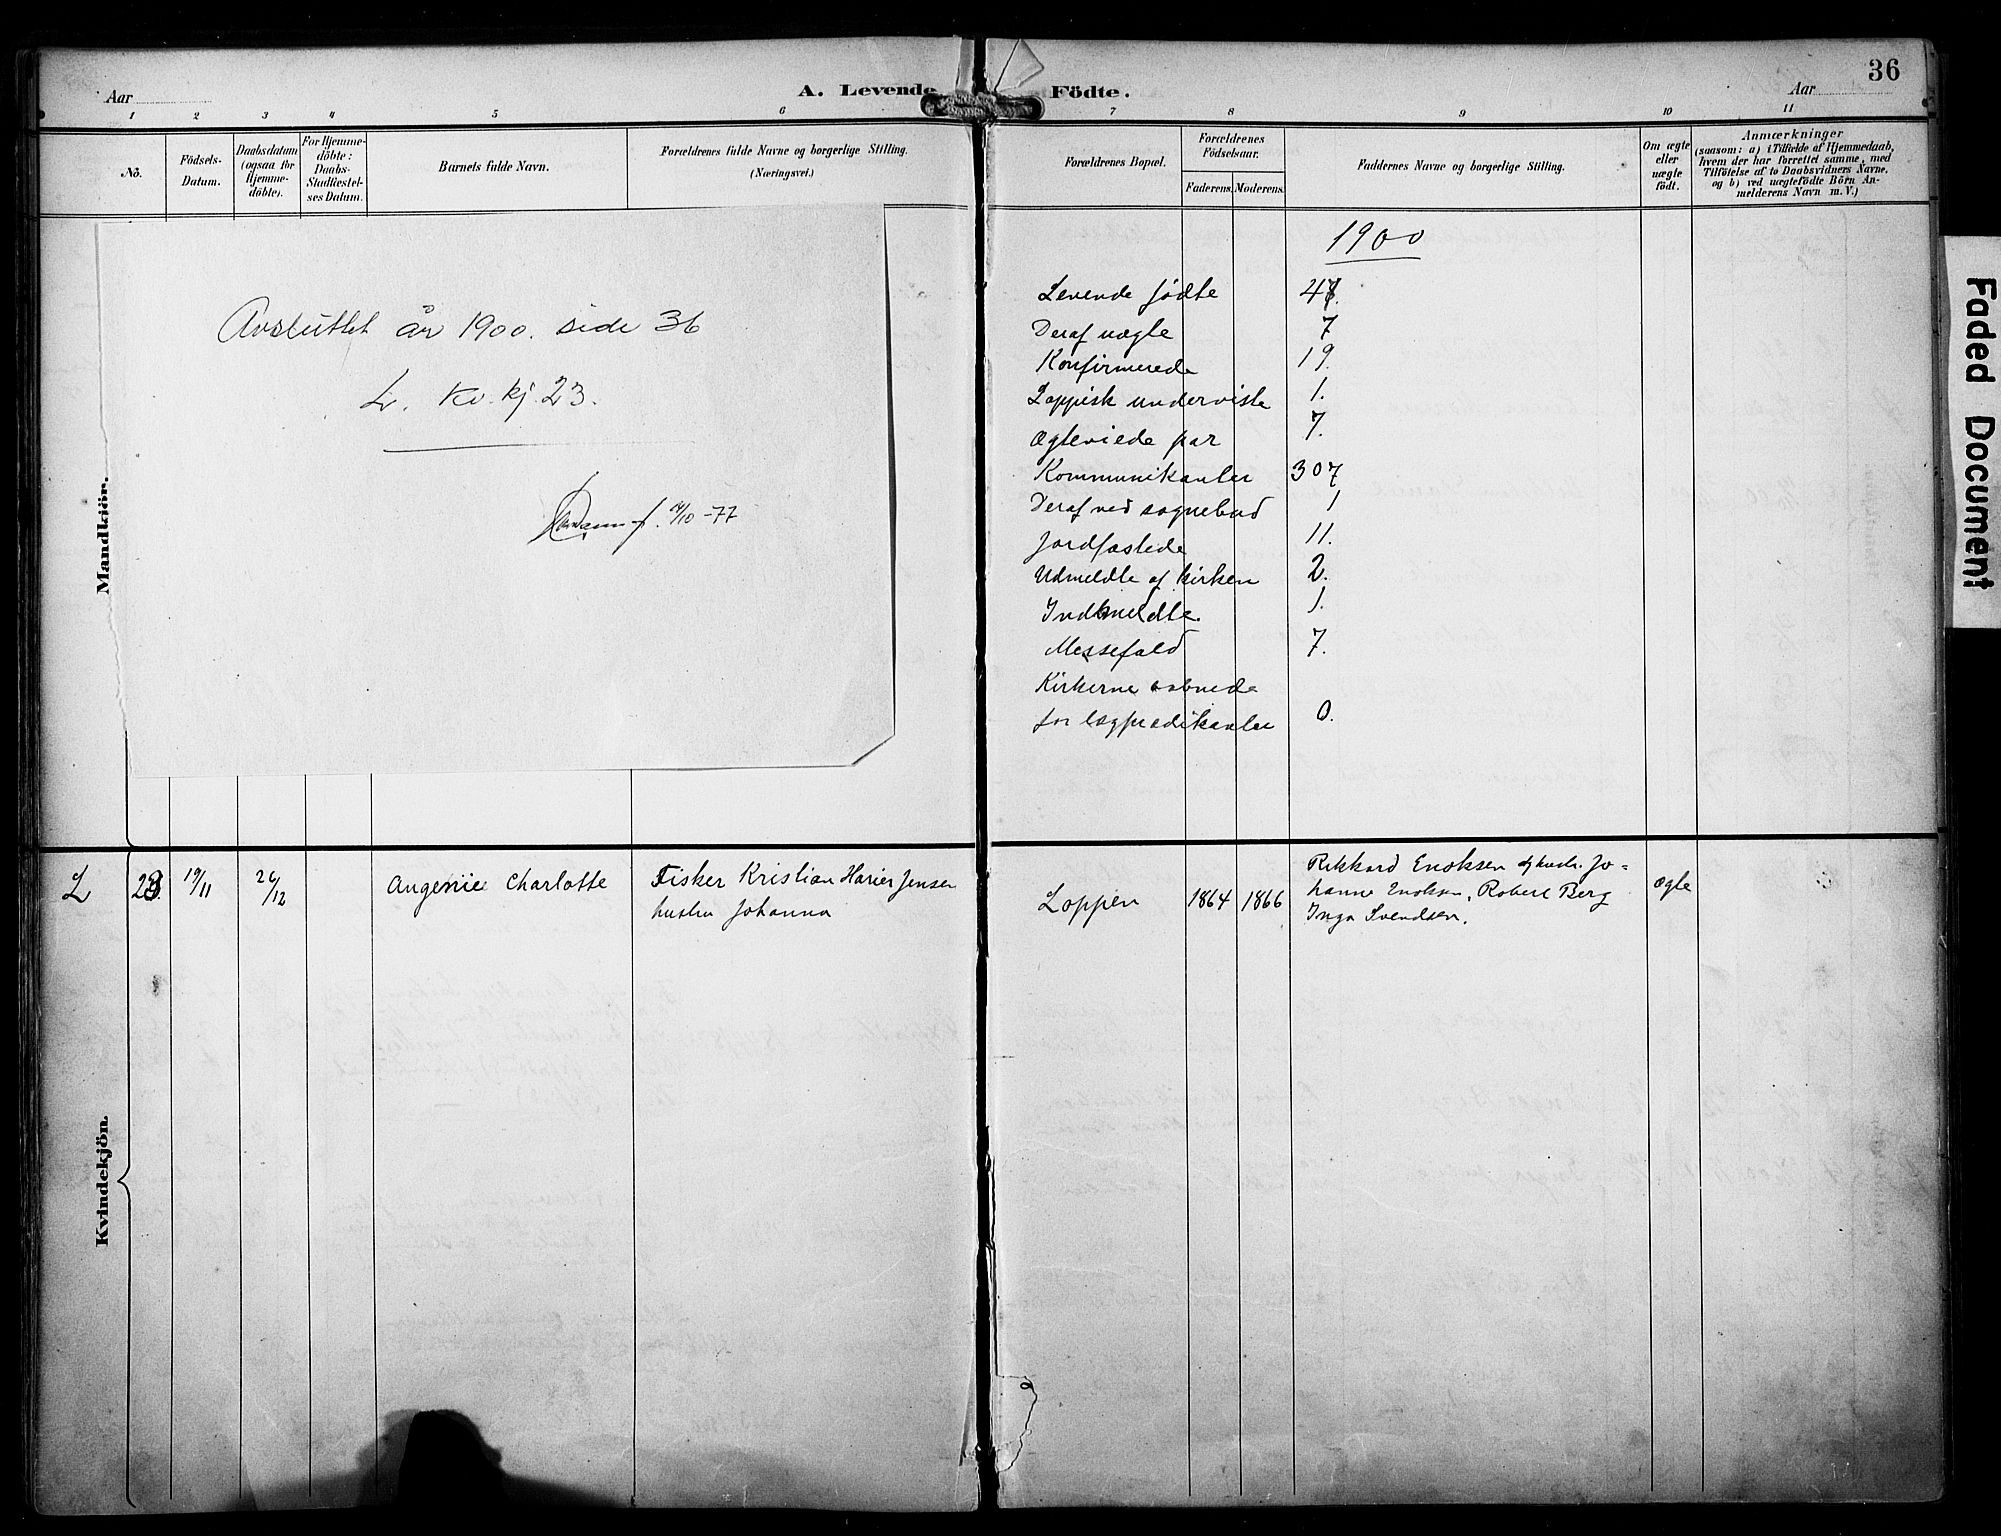 36
Aar
A. Levende Födte.
Aar
1 2 3 4 5 6 7 8 9 10 11
No.
Födsels-
Datum.
Daabsdatum
(ogsaa for
Hjemme-
döbte).
For Hjemme-
döbte:
Daabs-
Stadfæstel-
ses Datum.
Barnets fulde Navn.
Forældrenes fulde Navne og borgerlige Stilling.
(Næringsvei.)
Forældrenes Bopæl.
Forældrenes
Födselsaar.
Faderens. Moderens.
Faddernes Navne og borgerlige Stilling.
Om ægte
eller
uægte
født.
Anmærkninger
(saasom: a) i Tilfælde af Hjemmedaab,
hvem der har forrettet samme, med
Tilföielse af to Daabsvidners Navne,
og b) ved uægtefödte Börn An-
melderens Navn m. V.)
Mandkjön.
Avsluttet år 1900. side 36
L. Kv. kj. 23.
/10-77
1900
Levende fødte
Deraf uægte 7
Konfirmerede 19.
Lappisk underviste 1.
Ægteviede par 7.
Kommunikanter 307
Deraf ved sognebud 1
Jordfæstede 11.
Udmeldte af kirken 2.
Indmeldte 1.
Messefald 7.
Kirkerne aabnede
for lægprædikanter 0.
Faded Document
Kvindekjön.
L 23. 19/11 26/12 Angenie Charlotte Fisker Kristian Harier Jensen
hustru Johanna
Loppen 1864 1866
Rikkard Enoksen og hustr. Jo=
hanne Enoksen, Robert Berg
Inga Svendsen.
Ægte